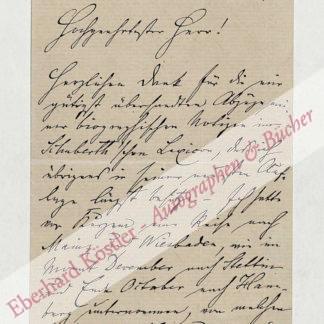 Hochgeehrtester Herr!
Herzlichen Dank für die mir
gütigst übersandten Abzüge mei-
ner biographischen Notizen im
Schuberth'schen Lexicon, das ich
übrigens in seiner neuesten Auf-
lage längst besitze. — Ich hatte
vor Kurzem eine Reise nach
Mainz Wiesbaden, wie im
December nach Stettin
und Ende October nach Ham-
burg unternommen, von welchen
Eberhard Köstler Autographen & Bücher